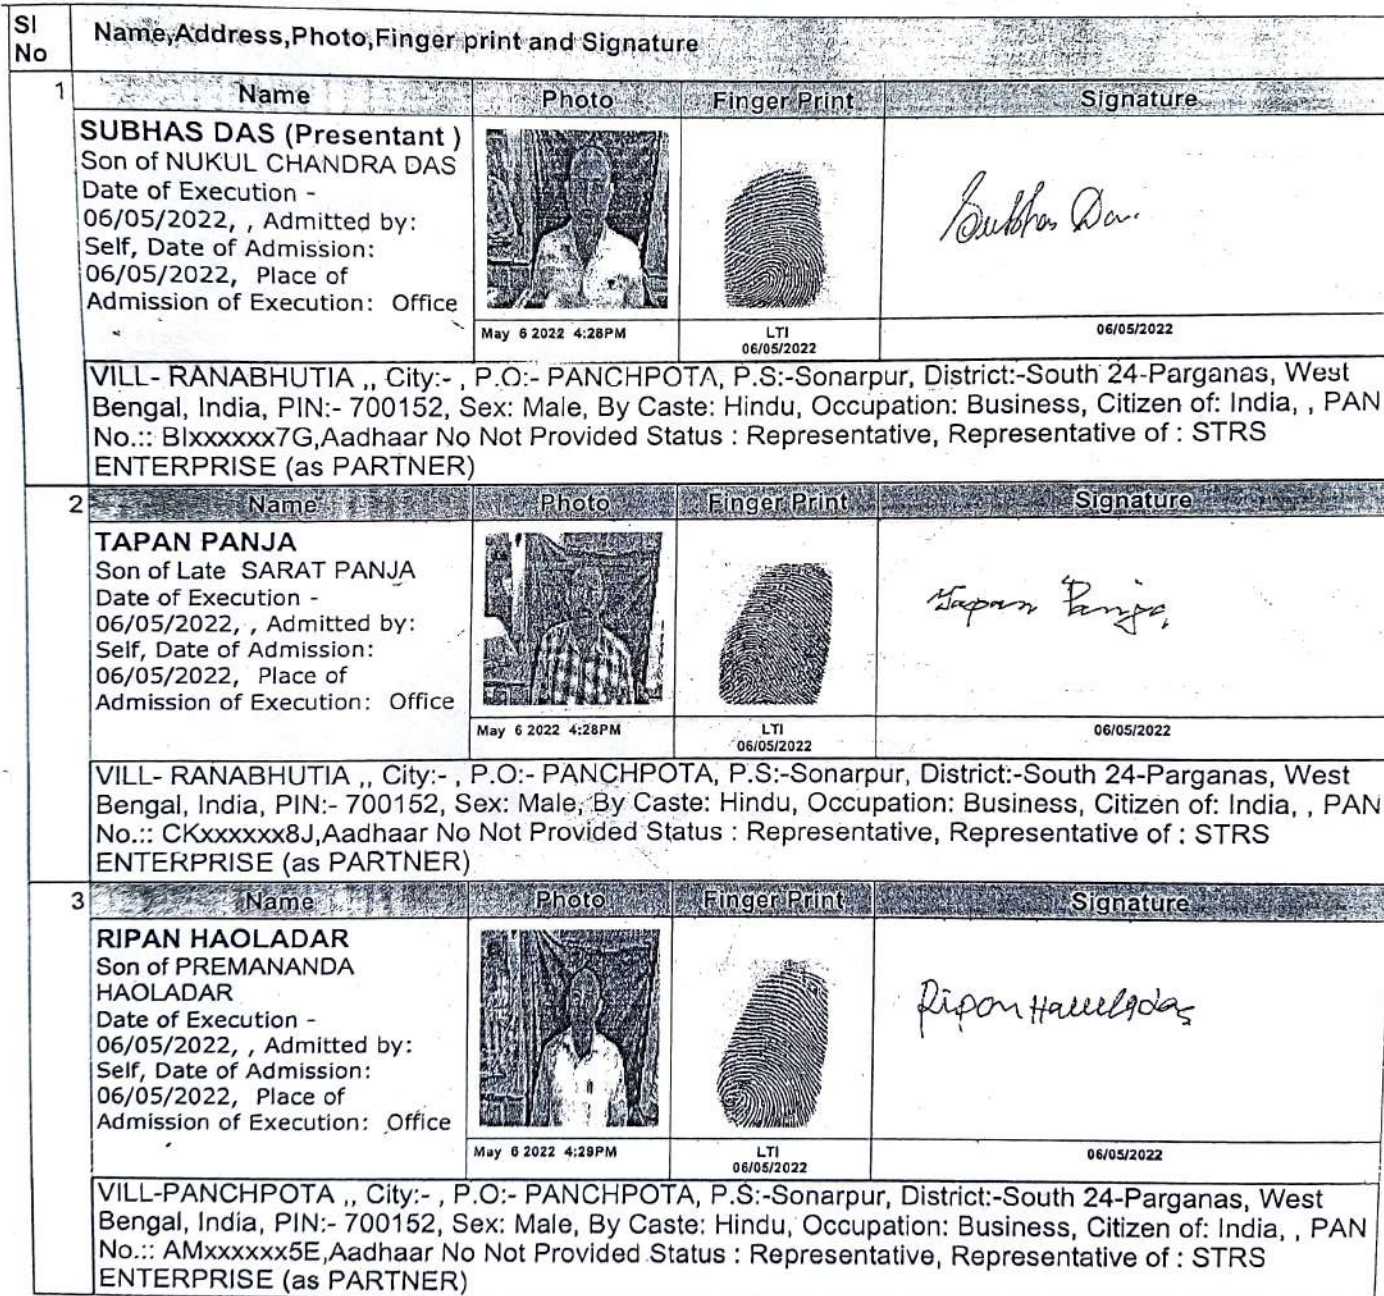 Sl
No
Name,Address,Photo,Finger print and Signature
1
Name Photo Finger Print Signature
SUBHAS DAS (Presentant )
Son of NUKUL CHANDRA DAS
Date of Execution -
06/05/2022, , Admitted by:
Self, Date of Admission:
06/05/2022, Place of
Admission of Execution: Office
Subhas Das.
May 6 2022 4:28PM
LTI
06/05/2022
06/05/2022
VILL- RANABHUTIA ,, City:- , P.O:- PANCHPOTA, P.S:-Sonarpur, District:-South 24-Parganas, West
Bengal, India, PIN:- 700152, Sex: Male, By Caste: Hindu, Occupation: Business, Citizen of: India, , PAN
No.:: BIxxxxxx7G,Aadhaar No Not Provided Status : Representative, Representative of : STRS
ENTERPRISE (as PARTNER)
2
Name Photo Finger Print Signature
TAPAN PANJA
Son of Late SARAT PANJA
Date of Execution -
06/05/2022, , Admitted by:
Self, Date of Admission:
06/05/2022, Place of
Admission of Execution: Office
Tapan Panja
May 6 2022 4:28PM
LTI
06/05/2022
06/05/2022
VILL- RANABHUTIA ,, City:- , P.O:- PANCHPOTA, P.S:-Sonarpur, District:-South 24-Parganas, West
Bengal, India, PIN:- 700152, Sex: Male, By Caste: Hindu, Occupation: Business, Citizen of: India, , PAN
No.:: CKxxxxxx8J,Aadhaar No Not Provided Status : Representative, Representative of : STRS
ENTERPRISE (as PARTNER)
3
Name Photo Finger Print Signature
RIPAN HAOLADAR
Son of PREMANANDA
HAOLADAR
Date of Execution -
06/05/2022, , Admitted by:
Self, Date of Admission:
06/05/2022, Place of
Admission of Execution: Office
Ripon
May 6 2022 4:29PM
LTI
06/05/2022
06/05/2022
VILL-PANCHPOTA ,, City:- , P.O:- PANCHPOTA, P.S:-Sonarpur, District:-South 24-Parganas, West
Bengal, India, PIN:- 700152, Sex: Male, By Caste: Hindu, Occupation: Business, Citizen of: India, , PAN
No.:: AMxxxxxx5E,Aadhaar No Not Provided Status : Representative, Representative of : STRS
ENTERPRISE (as PARTNER)